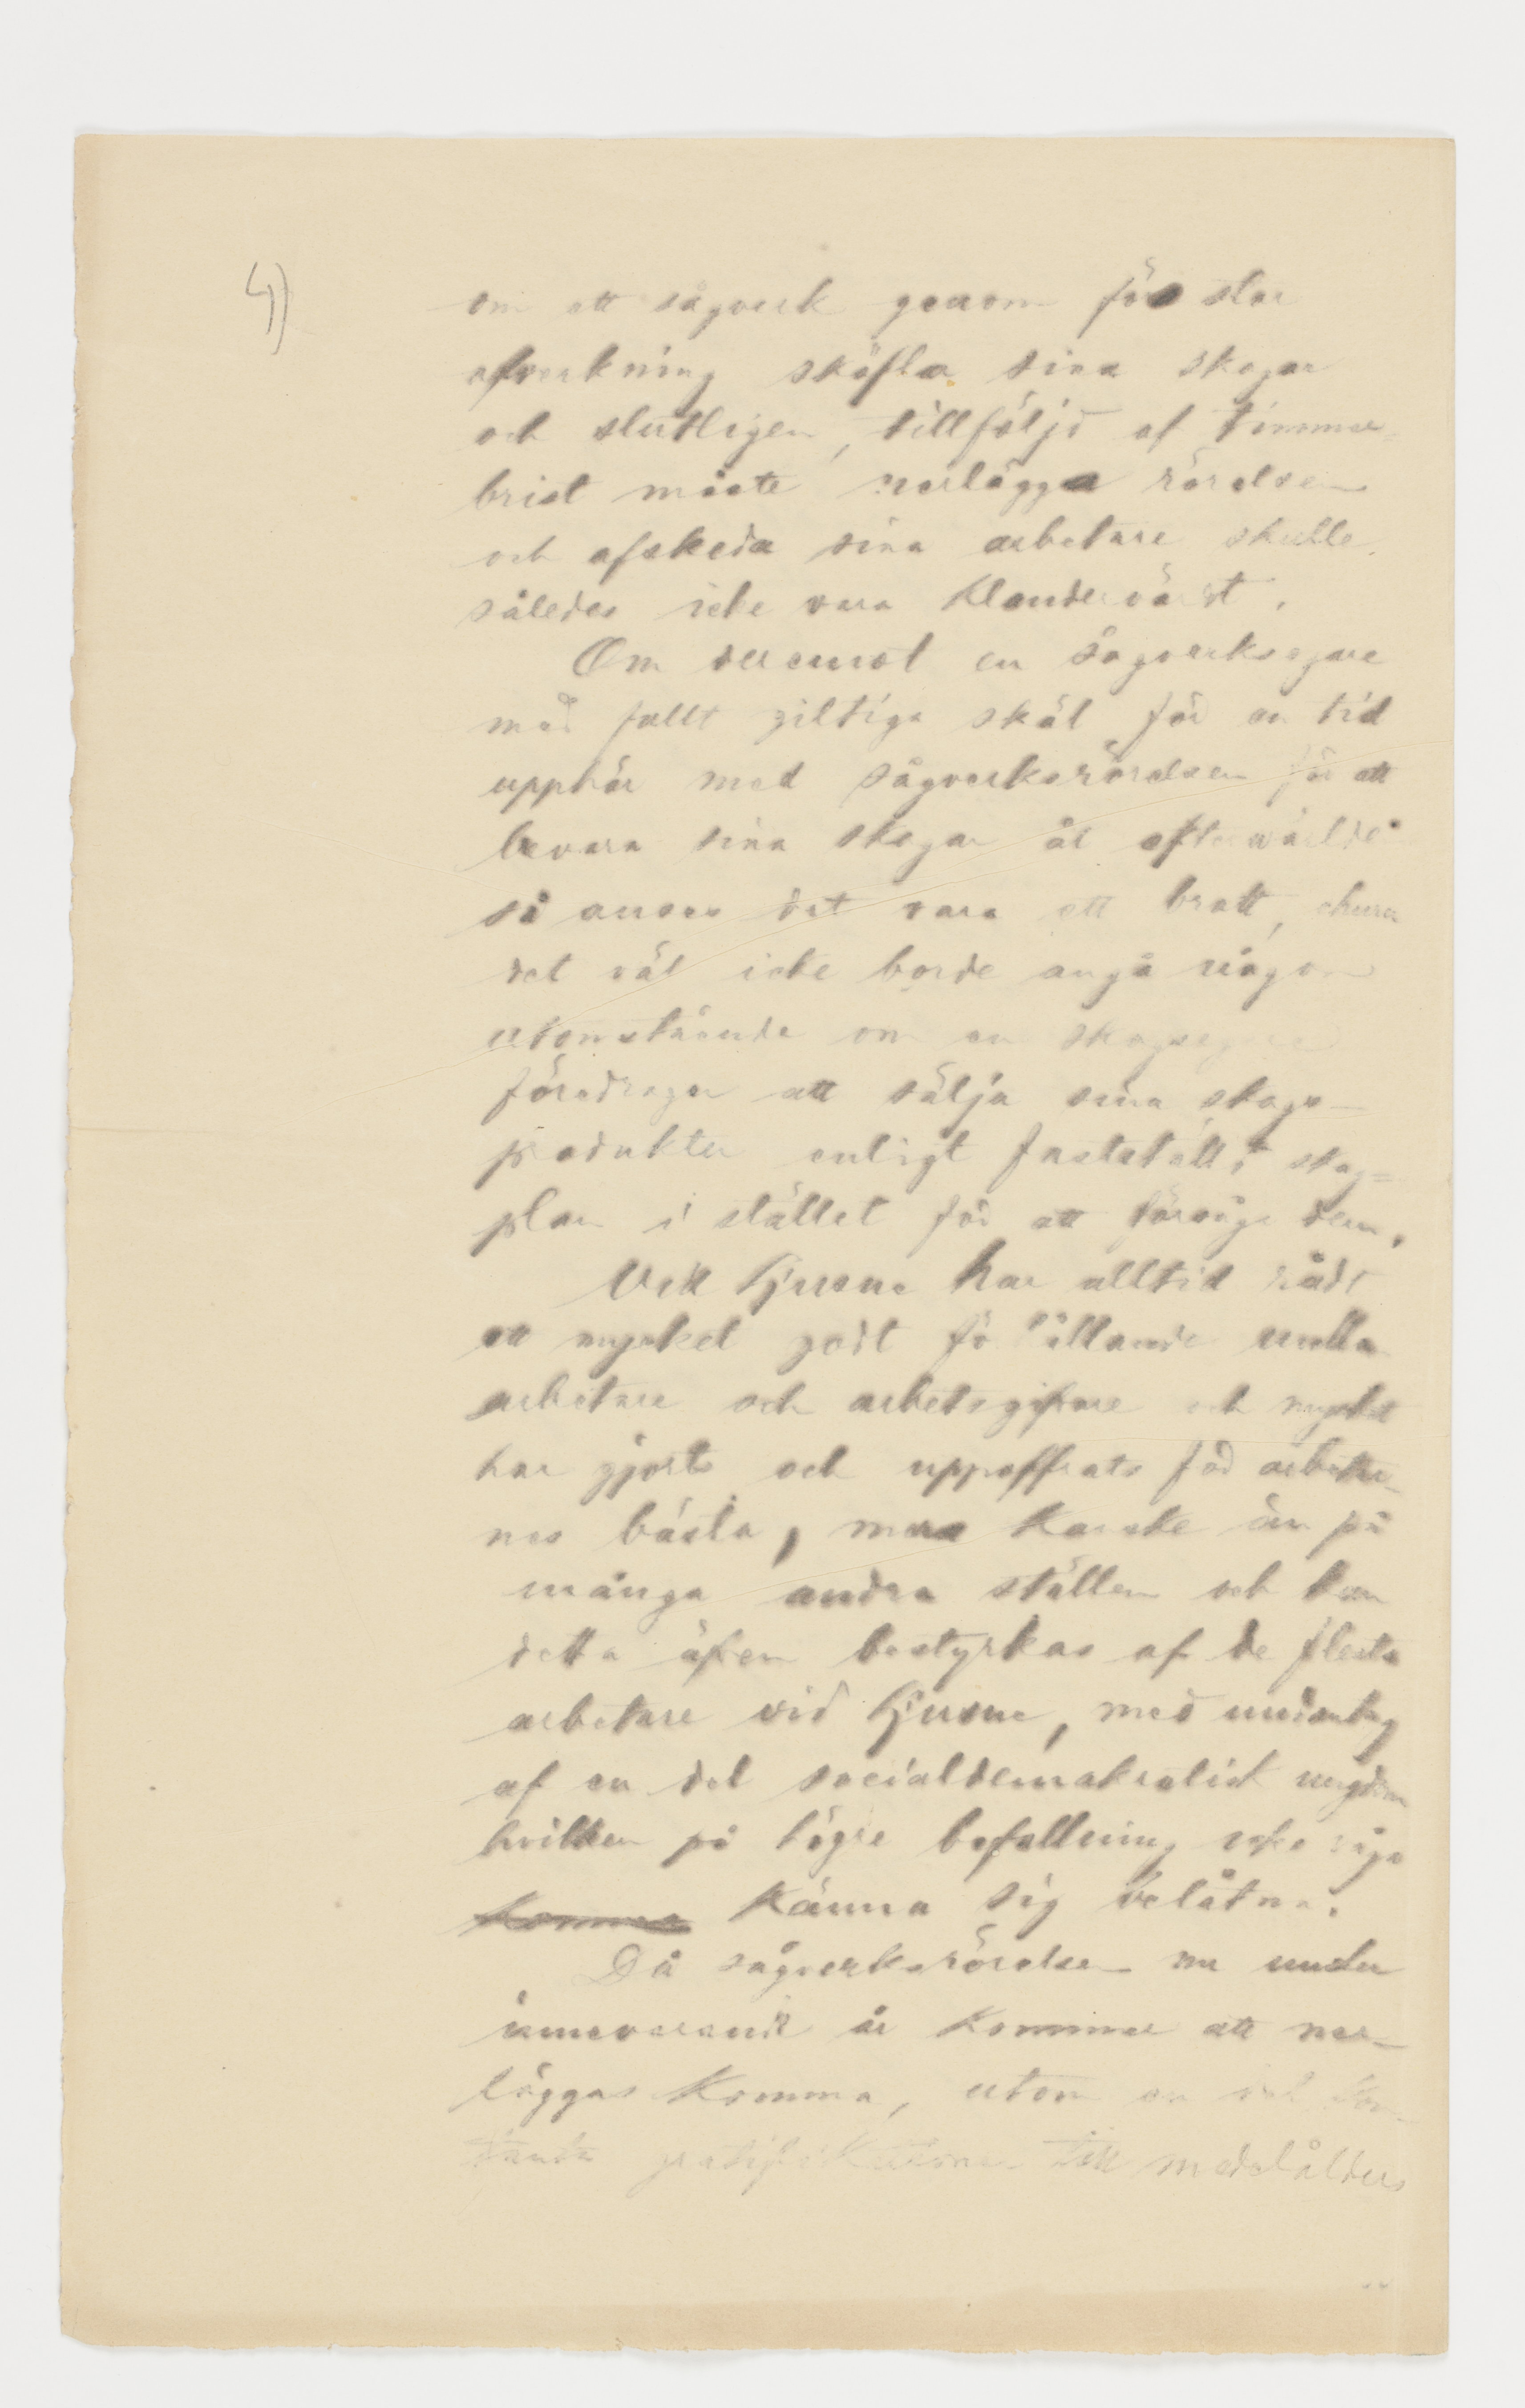 4)
om ett sågverk genom för stor
afverkning sköfla sina skogar
och slutligen, tillföljd af timmer=
brist måste nerlägga rörelsen
och afskeda sina arbetare skulle
således icke vara klandervärdt.
Om deremot en sågverksegare
med fullt giltiga skäl för en tid
upphör med sågverksrörelsen för att
bevara sina skogar åt efterverlde
så anses det vara ett brott, ehuru
det väl icke borde angå någon
utomstående om en skogsegare
föredrager att sälja sina skogs-
produkter enligt fastställt skog=
plan i stället för att försåga dem.
Vid Ljusne har alltid rådt
ett mycket godt förhållande mellan
arbetare och arbetsgifvare och mycket
har gjorts och uppoffrats för arbetar-
nes bästa, mera kanske än på
många andra ställen och kan
detta äfven bestyrkas af de flesta
arbetare vid Ljusne, med undantag
af en del socialdemokratisk ungdom
hvilken på högre befallning icke våga
känna sig belåtna.
Då sågverksrörelsen nu under
innevarande år kommer att ner-
läggas komma, utom en del
gratifikationer till medelålders